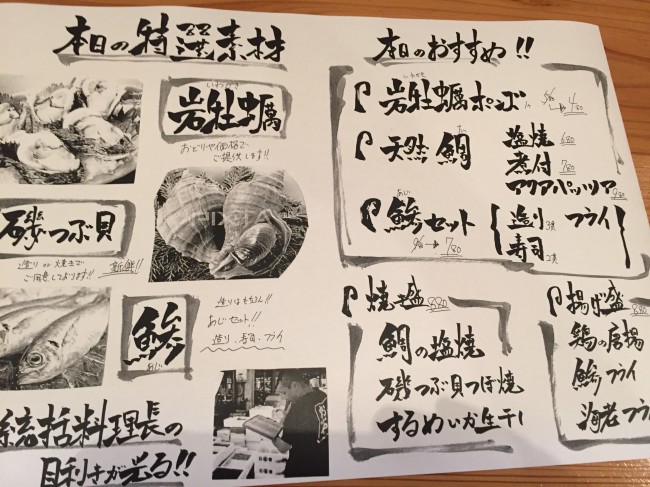 本日の特選素材
いわがき
岩牡蠣
おどろや価格で
ご提供します!!
磯つぶ貝
造り or 焼きで
ご用意しております!! 新鮮!!
鯵
あじ
造りはもちろん!!
あじセット!!
造り、寿司、フライ
統括料理長の
目利きが光る!!
本日のおすすめ!!
いわがき
岩牡蠣ポンズ 480
天然鯛 塩焼 680
たい
煮付 780
アクアパッツァ
あじ
鯵セット 780
造り 3貫 フライ
寿司 2貫
焼き盛 880
鯛の塩焼
磯つぶ貝つぼ焼
するめいか生干し
揚げ盛 880
鶏の唐揚
鯵フライ
海老フラ